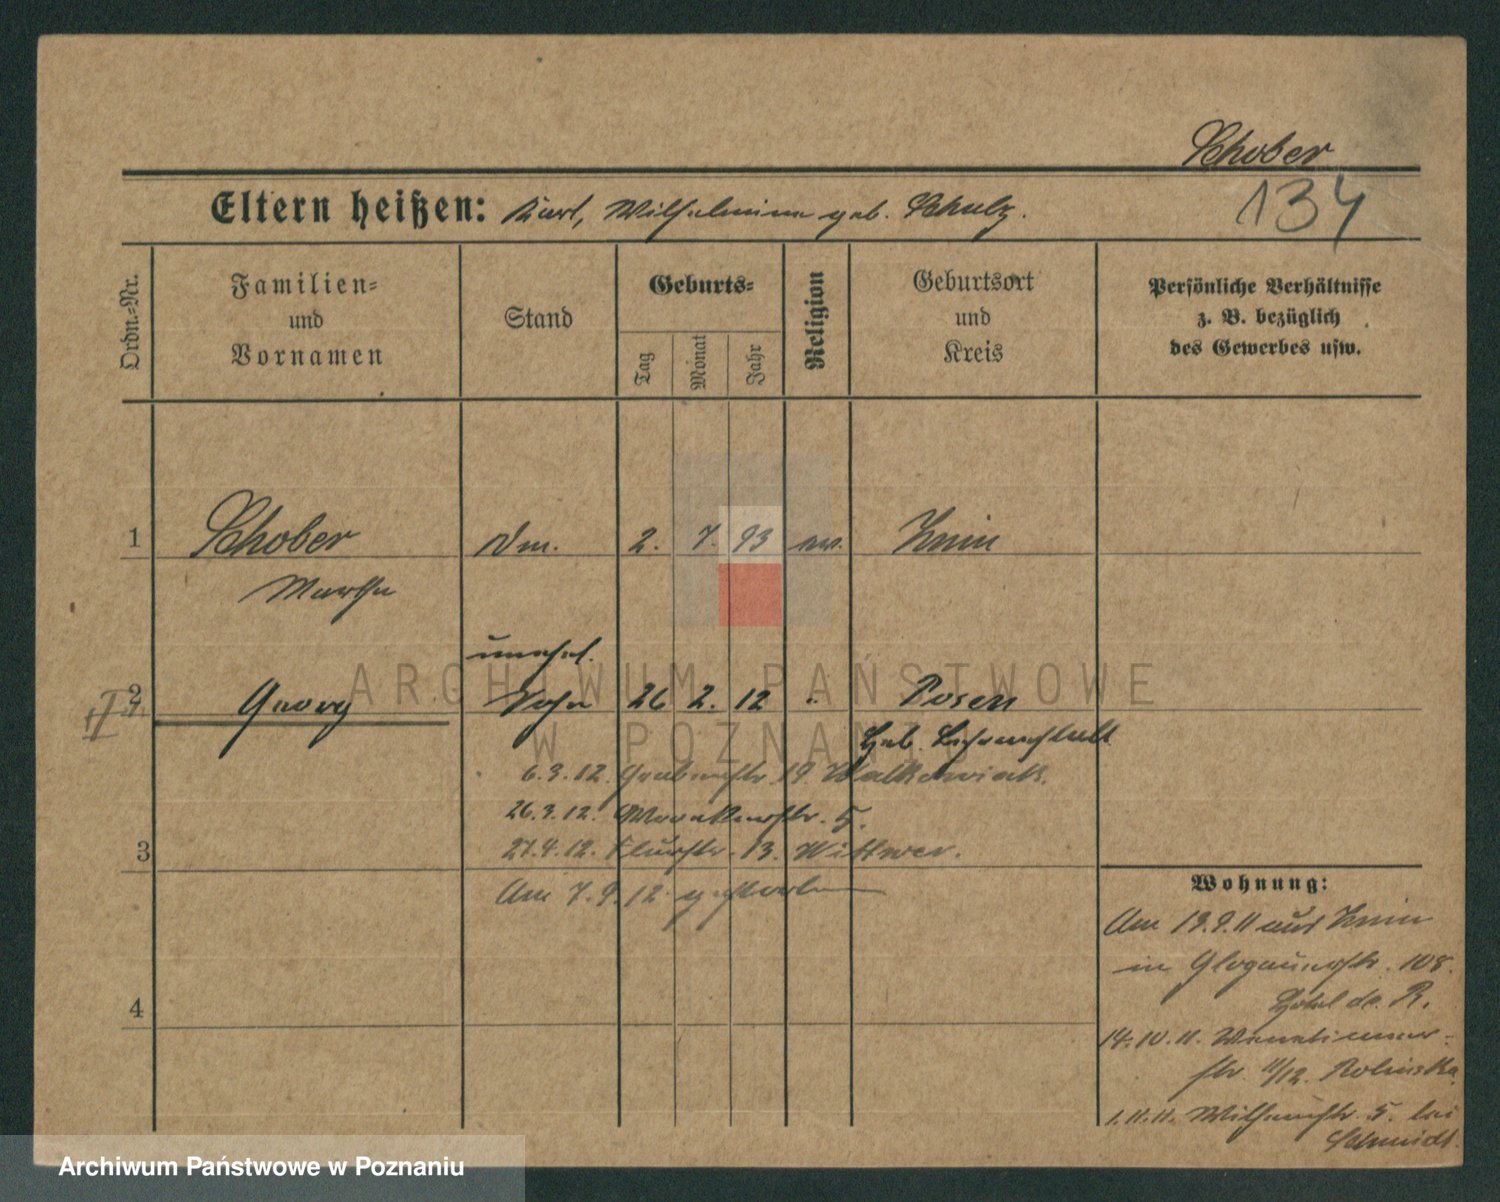 Schober
134
Eltern heißen: Karl, Wilhelmine geb. Schulz.
Ordn.-Nr.
Familien-
und
Vornamen
Stand
Geburts-
Tag
Monat
Jahr
Religion
Geburtsort
und
Kreis
Persönliche Verhältnisse
z. B. bezüglich
des Gewerbes usw.
1 Schober 2. 7. 93 ev. Znin
Martha
unehel.
2 Georg Sohn 26 2. 12 " Posen
Heb. Lehranstalt
6.3.12. Grabenstr. 19. Walkowiak.
26.3.12. 5.
3
27.4.12. Flurstr. 13. Wittwer.
Am 7.9.12 gestorben
4
Wohnung:
Am 13.9.11 aus Znin
in Glogauerstr. 108.
Hotel de R.
14.10.11.
str. 11/12.
1.11.11. 5. bei
Schmidt.
ARCHIWUM PAŃSTWOWE
W POZNANIU
Archiwum Państwowe w Poznaniu